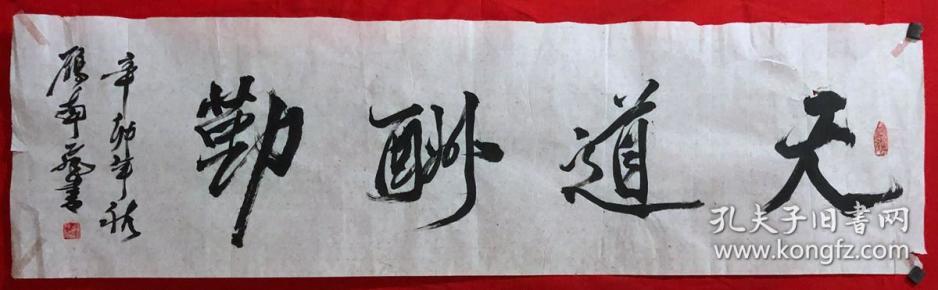 天道酬勤
辛卯年秋
雁南 书
孔夫子旧書网
www.kongfz.com